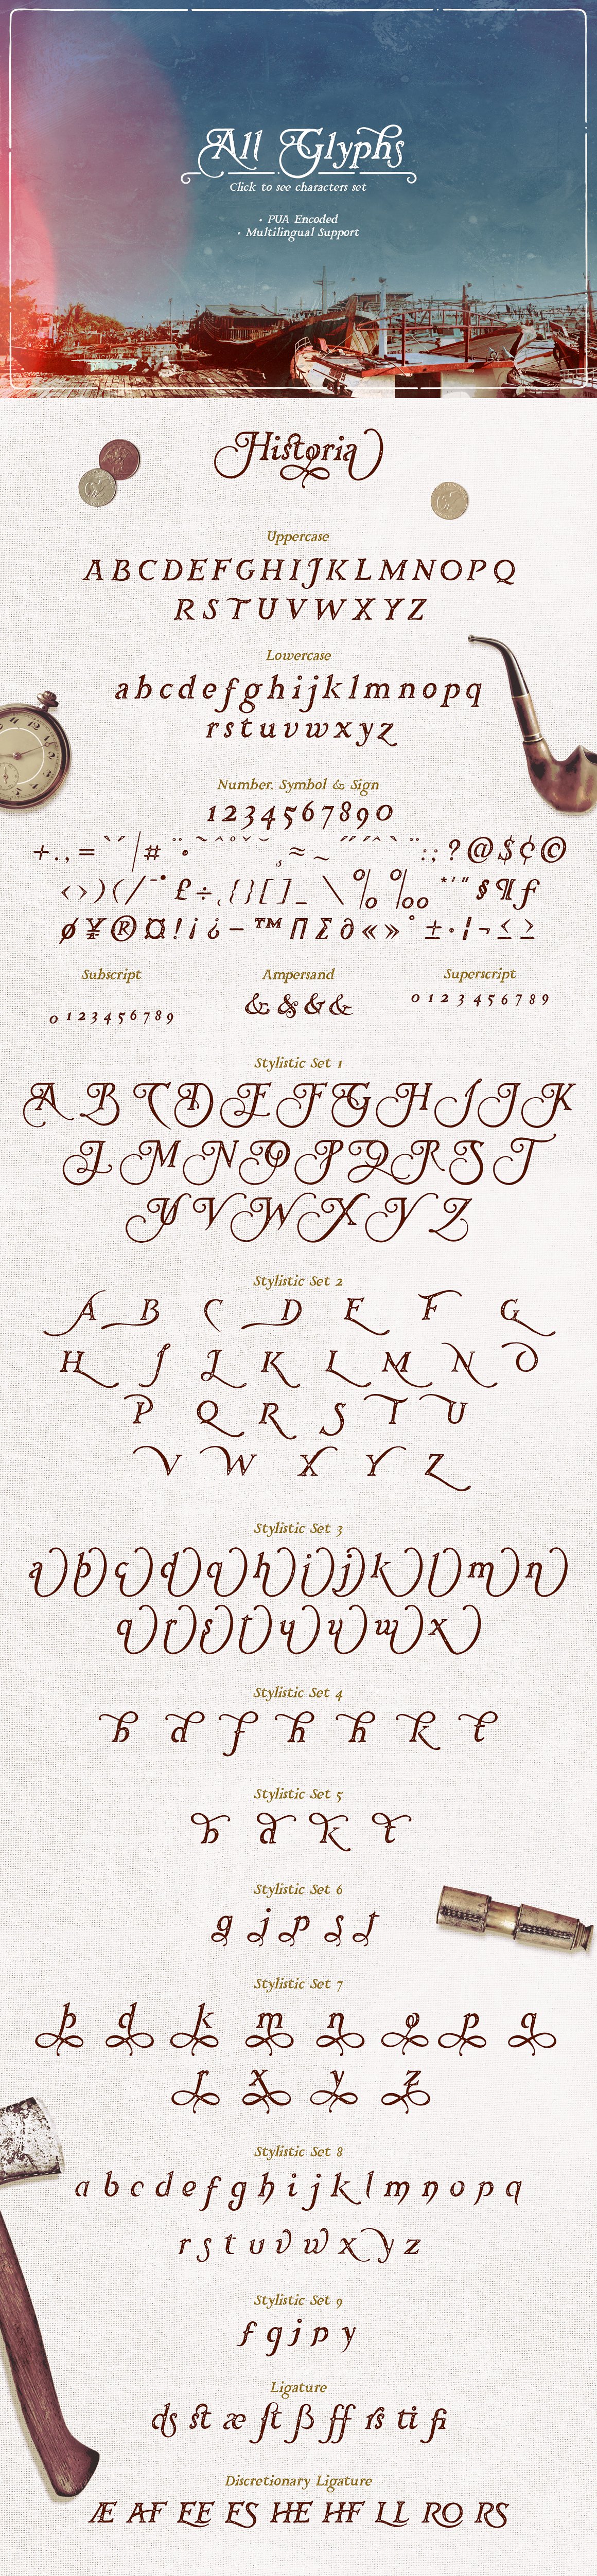 All Glyphs
Click to see characters set
• PUA Encoded
• Multilingual Support
Historia
Uppercase
A B C D E F G H I J K L M N O P Q
R S T U V W X Y Z
Lowercase
a b c d e f g h i j k l m n o p q
r s t u v w x y z
Number, Symbol & Sign
1 2 3 4 5 6 7 8 9 0
? @ $ ¢ ©
Subscript
Ampersand
Superscript
0 1 2 3 4 5 6 7 8 9
& & & &
0 1 2 3 4 5 6 7 8 9
Stylistic Set 1
A B C D E F G H I J K
L M N O P Q R S T
U V W X Y Z
Stylistic Set 2
A B C D E F G
H I J K L M N O
P Q R S T U
V W X Y Z
Stylistic Set 3
Stylistic Set 4
b d f h h k t
Stylistic Set 5
b d k t
Stylistic Set 6
g j p s t
Stylistic Set 7
b d k m n o p q
r x y z
Stylistic Set 8
a b c d e f g h i j k l m n o p q
r s t u v w x y z
Stylistic Set 9
f g j p y
Ligature
Discretionary Ligature
Æ AF EE ES HE HF LL RO RS